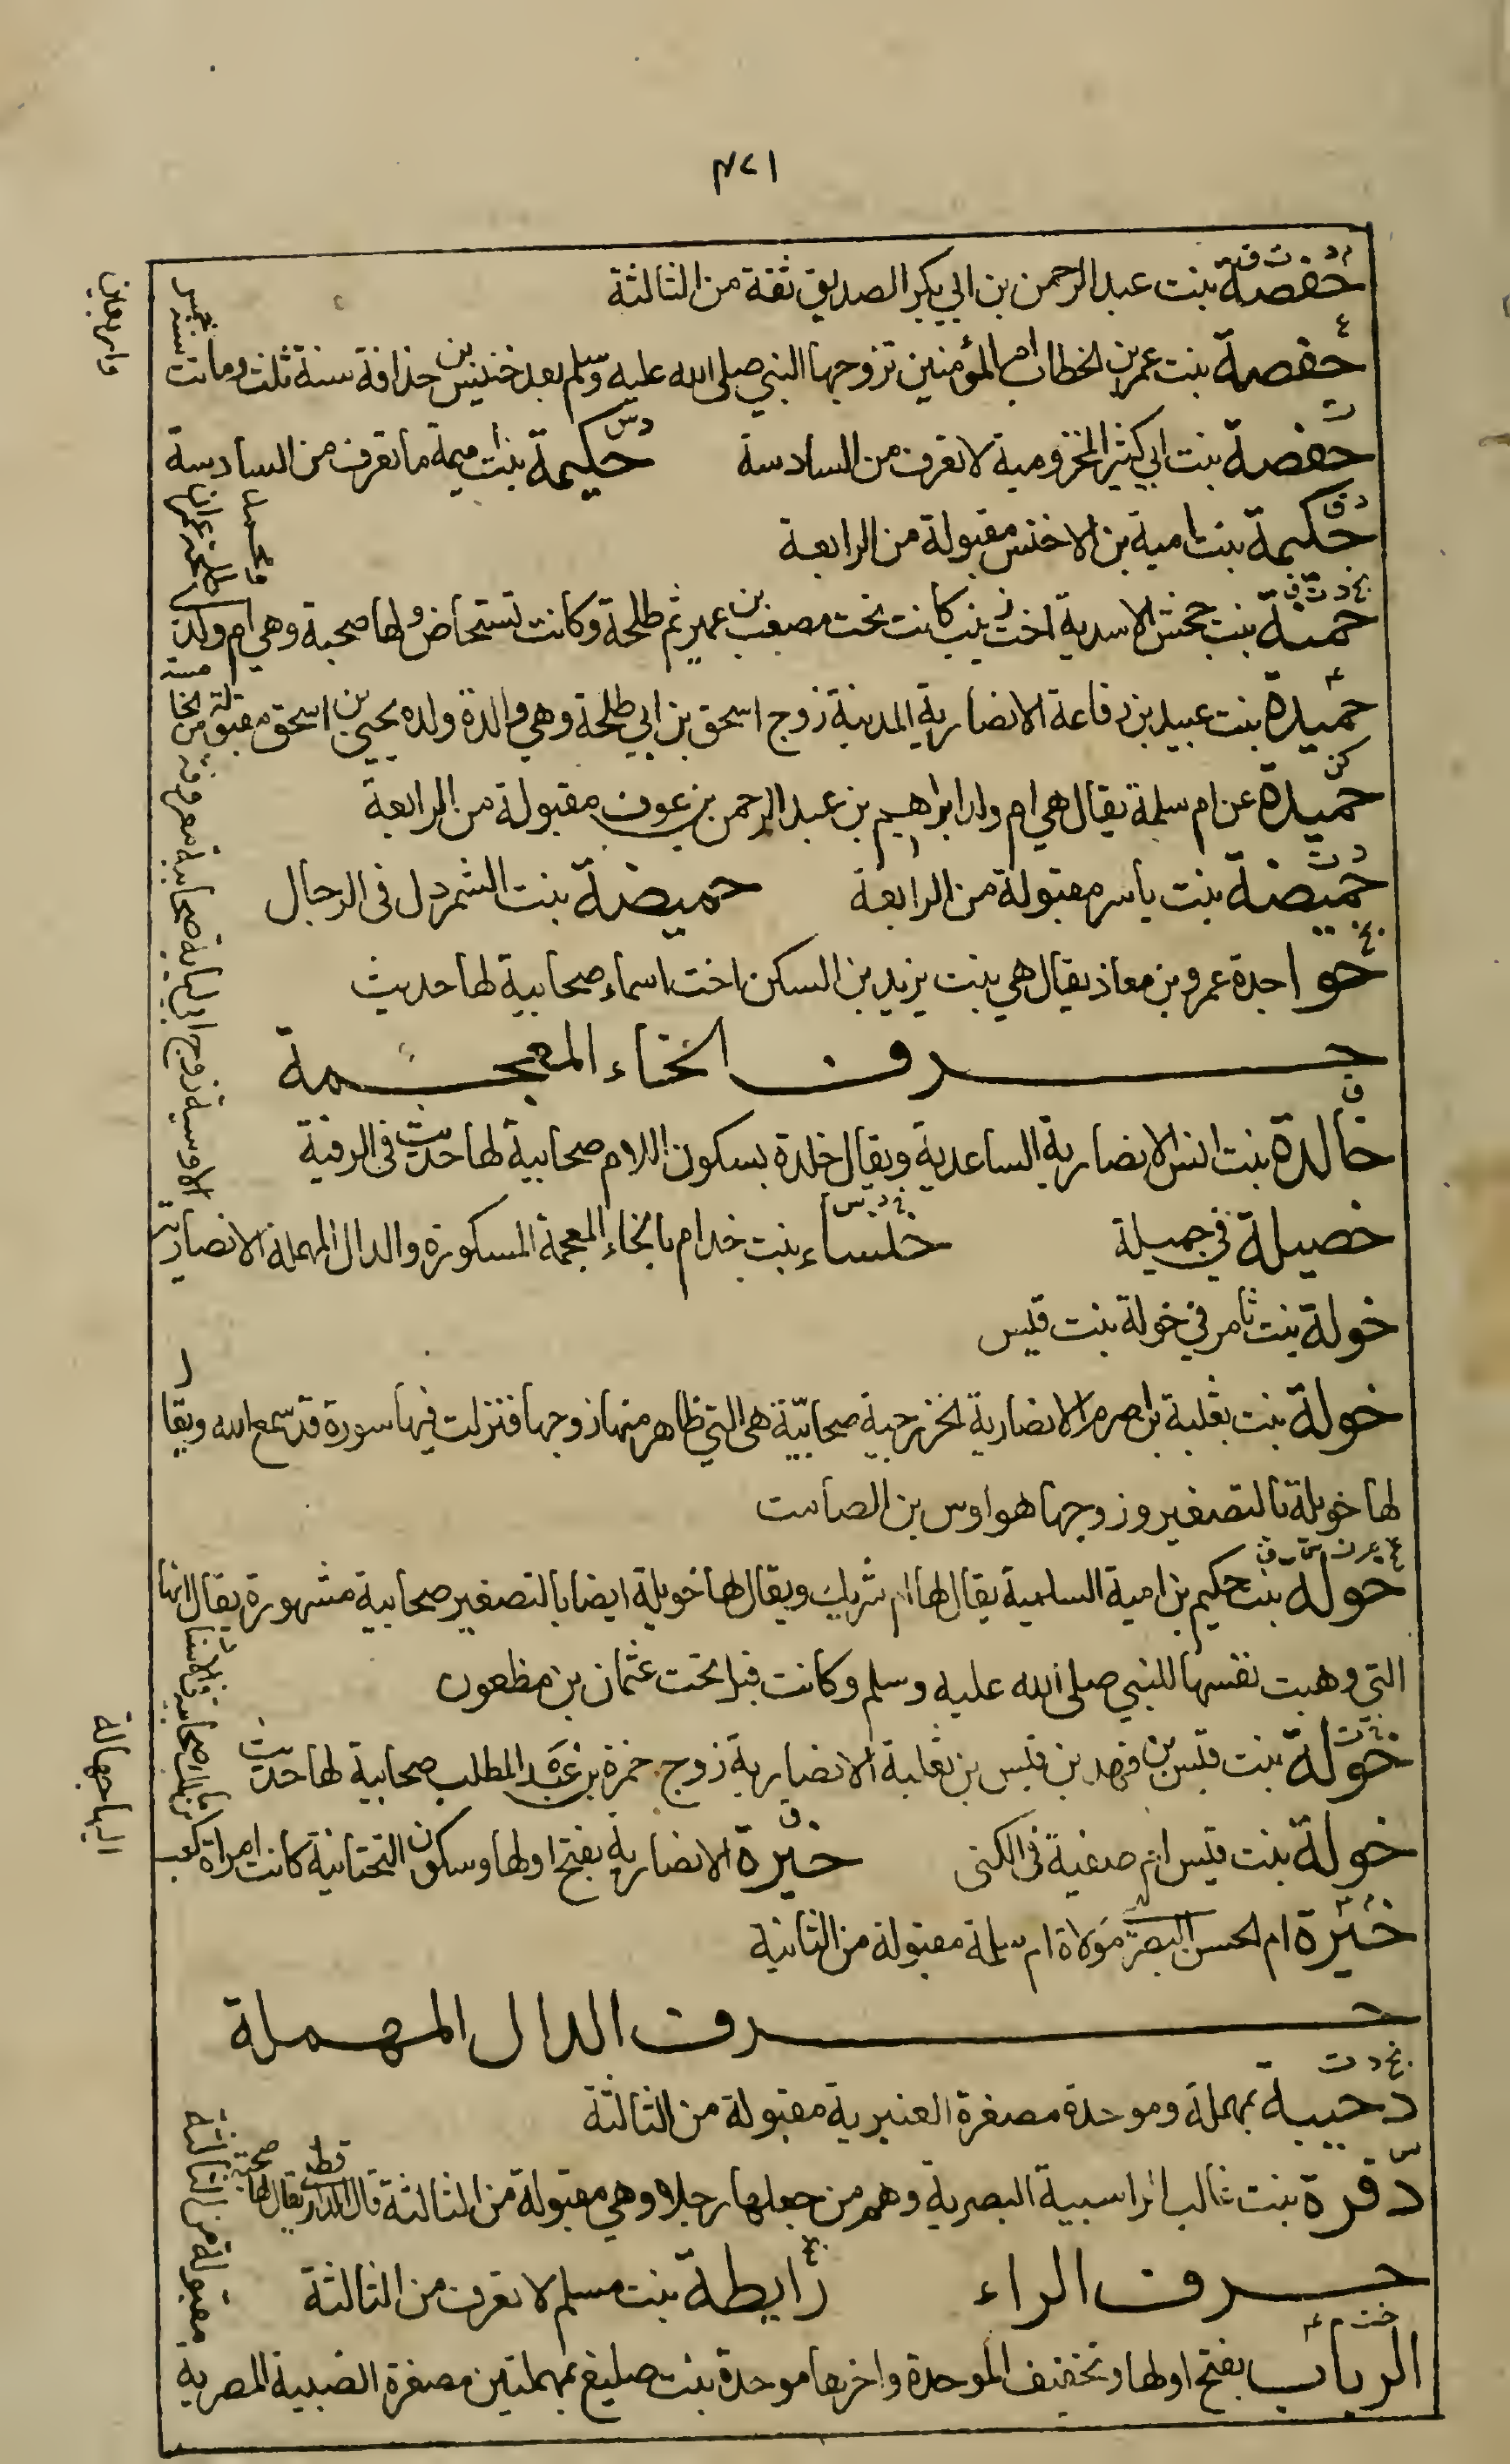 ٤٧١
م د ت ق
حفصة بنت عبد الرحمن بن ابي بكر الصديق ثقة من الثالثة
ع
حفصة بنت عمر بن الخطاب ام المؤمنين تزوجها النبي صلى الله عليه وسلم بعد خنيس بن حذافة سنة ثلث وماتت سنة خمس
واربعين
ت
حفصة بنت ابي كثير المخزومية لا تعرف من السادسة
د س
حكيمة بنت اميمة ما تعرف من السادسة
د ق
حكيمة بنت امية بن الاخنس مقبولة من الرابعة
بخ د ت ق
حمنة بنت جحش الاسدية اخت زينب كانت تحت مصعب بن عمير ثم طلحة وكانت تستحاض ولها صحبة وهي ام ولدي طلحة عمران
ومحمد
ع
حميدة بنت عبيد بن رفاعة الانصارية المدنية زوج اسحق بن ابي طلحة وهي والدة ولده يحيى بن اسحق مقبولة من الخامسة
كن
حميدة عن ام سلمة يقال هي ام ولد ابراهيم بن عبد الرحمن بن عوف مقبولة من الرابعة
د ت
حميضة بنت ياسر مقبولة من الرابعة
حميضة بنت الشمردل في الرجال
بخ
حوا جدة عمرو بن معاذ يقال هي بنت يزيد بن السكن اخت اسماء صحابية لها حديث
حرف الخاء المعجمة
ق
خالدة بنت انس الانصارية الساعدية ويقال خلدة بسكون اللام صحابية لها حديث في الرقية
خصيلة في جميلة
خ د س
خنساء بنت خدام بالخاء المعجمة المسكورة والدال المهملة الانصارية
الاوسية زوج ابي لبابة صحابية معروفة
خولة بنت ثامر في خولة بنت قيس
خولة بنت ثعلبة بن اصرم الانصارية الخزرجية صحابيّة هي التي ظاهر منها زوجها فنزلت فيها سورة قد سمع الله ويقال
لها خويلة بالتصغير وزوجها هو اوس بن الصامت
خولة بنت حكيم بن امية السلمية يقال لها ام شريك ويقال لها خويلة ايضا بالتصغير صحابية مشهورة يقال انها
التي وهبت نفسها للنبي صلى الله عليه وسلم وكانت قبل تحت عثمان بن مظعون
خ ت
خولة بنت قيس بن قهد بن قيس بن ثعلبة الانصارية زوج حمزة بن عبد المطلب صحابية لها حديث
خولة بنت قيس ام صفية في الكنى
ق
خيرة الانصارية بفتح اولها وسكون التحتانية كانت امراة كعب
بن مالك صحابية
خيرة ام الحسن البصري مولاة ام سلمة مقبولة من الثانية
حرف الدال المهملة
بخ د ت
دحيبة بمهملة وموحدة مصغرة العنبرية مقبولة من الثالثة
س
دقرة بنت غالب الراسبية البصرية وهم من جعلها رجلا وهي مقبولة من الثالثة قال الدارقطني يقال لها صحبة
حرف الراء
بخ
رايطة بنت مسلم لا تعرف من الثالثة
خت ع
الرباب بفتح اولها وتخفيف الموحدة واخرها موحدة بنت صليع بمهملتين مصغرة الضبية المصرية
مقبولة من الثالثة